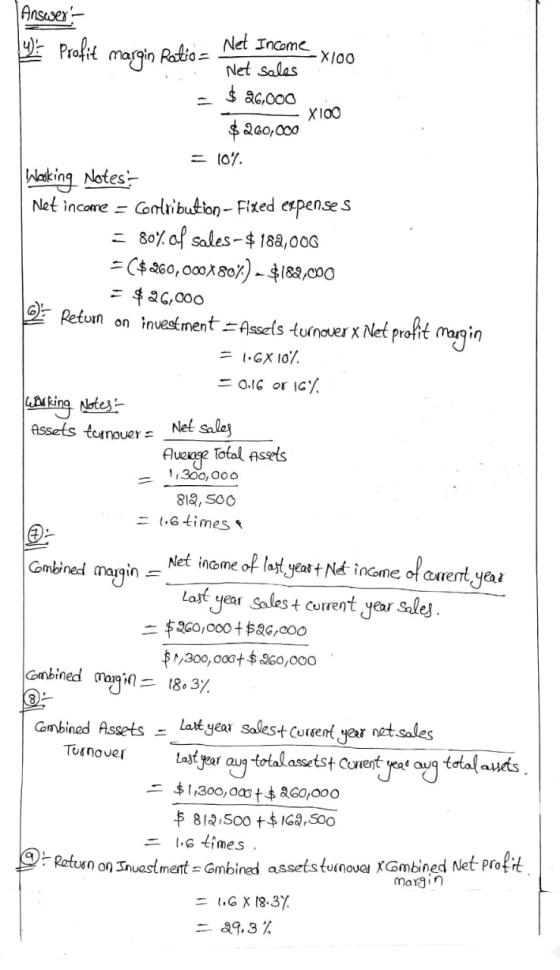 Answer:-
4):- Profit margin Ratio = Net Income / Net Sales X100
= $26,000 / $260,000 X100
= 10%.
Working Notes:-
Net income = Contribution - Fixed expenses
= 80% of sales - $182,000
= ($260,000X80%) - $182,000
= $26,000
6):- Return on investment = Assets turnover x Net profit margin
= 1.6X10%.
= 0.16 or 16%.
Working Notes:-
Assets turnover = Net Sales / Average Total Assets
= 1,300,000 / 812,500
= 1.6 times
7):-
Combined margin = Net income of last year + Net income of current year / Last year sales + current year sales.
= $260,000 + $26,000 / $1,300,000 + $260,000
Combined margin = 18.3%
8):-
Combined Assets Turnover = Last year sales + Current year net sales / Last year avg total assets + Current year avg total assets.
= $1,300,000 + $260,000 / $812,500 + $162,500
= 1.6 times.
9):- Return on Investment = Combined assets turnover X Combined Net profit margin
= 1.6 X 18.3%
= 29.3%